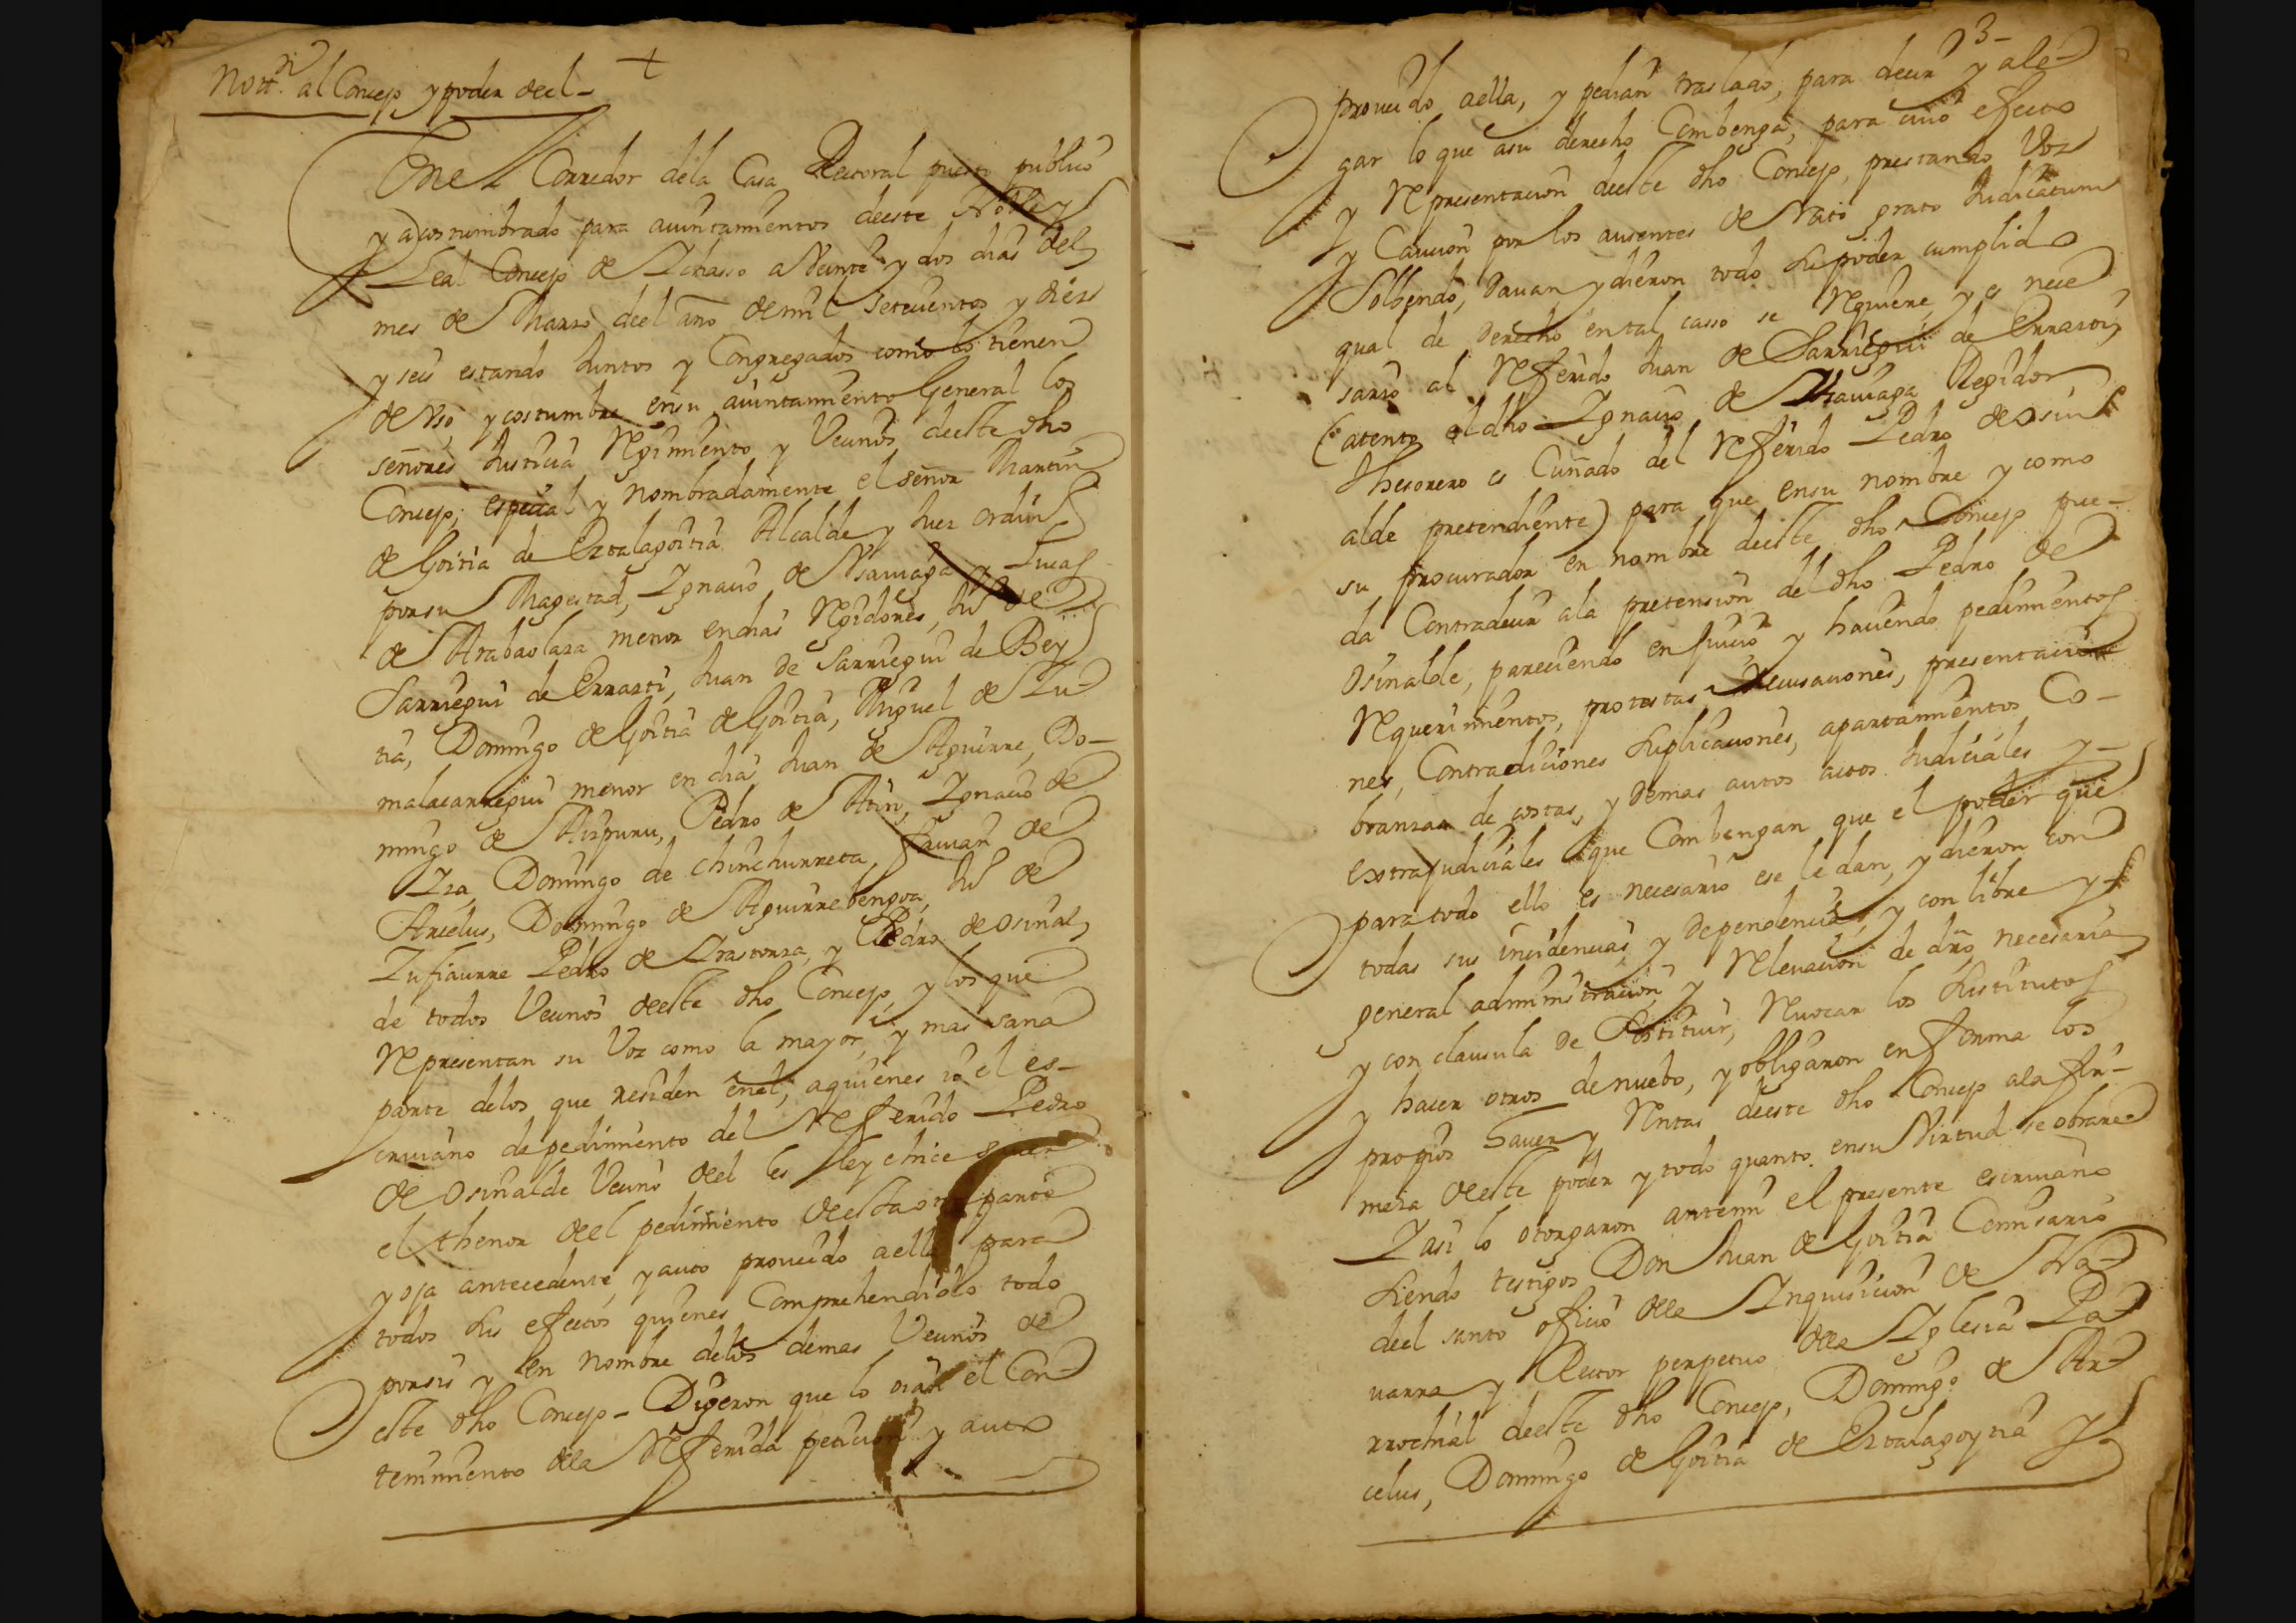 Nott.n al Concejo y poder deel –
+
En el Corredor dela Casa Rectoral puesto publico
y acostumbrado para aiuntamientos deeste Noble y
Leal Concejo de Ichasso a Veinte y dos dias del
mes de Marzo deel año de mil setecientos y diez
y seis estando Juntos y Congregados como lo tienen
de Vso y costumbre en su aiuntamiento General los
señores Justicia Regimiento y Vecinos deeste dho
Concejo; especial y nombradamente el señor Martin
de Goitia de Erztalagoitia Alcalde y Juez ordin.º
por su Magestad, Ignacio de Vsauiaga y Lucas
de Arabaolaza menor en dias Regidores, Ju.º de
Sarriegui de Errazti, Juan de Sarriegui de Bey
tia, Domingo de Goitia de Goitia, Miguel de Zu
malacarregui menor en dias, Juan de Aguirre, Do–
mingo de Aizpuru, Pedro de Atin, Ignacio de
Iza, Domingo de Chinchurreta, Fauian de
Arcelus, Domingo de Aguirrebengoa, Ju.º de
Zufiaurre Pedro de Irastorza, y Pedro de Osinal
de todos Vecinos deeste dho Concejo, y los que
Representan su Voz como la mayor, y mas sana
parte delos que residen enel; aquienes io el es–
criuano de pedimiento del Referido Pedro
de Osinalde Vecino deel les ley e hice sauer
el thenor deel pedimiento deesta otra parte
y oja antecedente, y auto proueido aella para
todos sus efectos quienes Comprehendidolo todo
por si y en nombre delos demas Vecinos de
este dho Concejo – Digeron que lo oian el Con
tenimiento dela Referida peticion y auto
3–
proueido aella, y pedian traslado, para decir y ale
gar lo que asu derecho Combenga, para cuio efecto
y Representacion deeste dho Concejo, prestando Voz
y Caucion por los ausentes de Rato grato Judicatum
Solbendo, Dauan y dieron todo su poder cumplido
qual de Derecho en tal casso se Requiere, y es nece
sario al Referido Juan de Sarriegui de Errazti,
(atento el dho Ignacio de Vsauiaga Regidor
Thesorero es Cuñado del Referido Pedro de Osin
alde pretendiente) para que en su nombre y como
su procurador en nombre deeste dho Concejo pue–
da Contradecir ala pretension del dho Pedro de
Osinalde, pareciendo en Juicio y haciendo pedimientos
Requerimientos, protestas, Recusaciones, presentacio
nes, Contradiciones Suplicaciones, apartamientos Co–
branzas de costas, y demas autos actos Judiciales y–
extrajudiciales que Combengan que el poder que
para todo ello es necesario ese le dan, y dieron con
todas sus incidencias, y dependencias, y con libre y
general administracion y Releuacion de dro necesaria
y con clausula de sostituir, Reuocar los sustitutos
y hacer otros denuebo, y obligaron en forma los
propios hauer y Rentas deeste dho Concejo ala fir–
meza deeste poder y todo quanto en su Virtud se obrare
I asi lo otorgaron antemi el presente escriuano
siendo testigos Don Juan de Goitia Comisario
deel santo oficio dela Inquisicion de Na
uarra y Rector perpetuo dela Iglesia Pa
rrochial deeste dho Concejo, Domingo de Ar
celus, Domingo de Goitia de Erztalagoytia Y